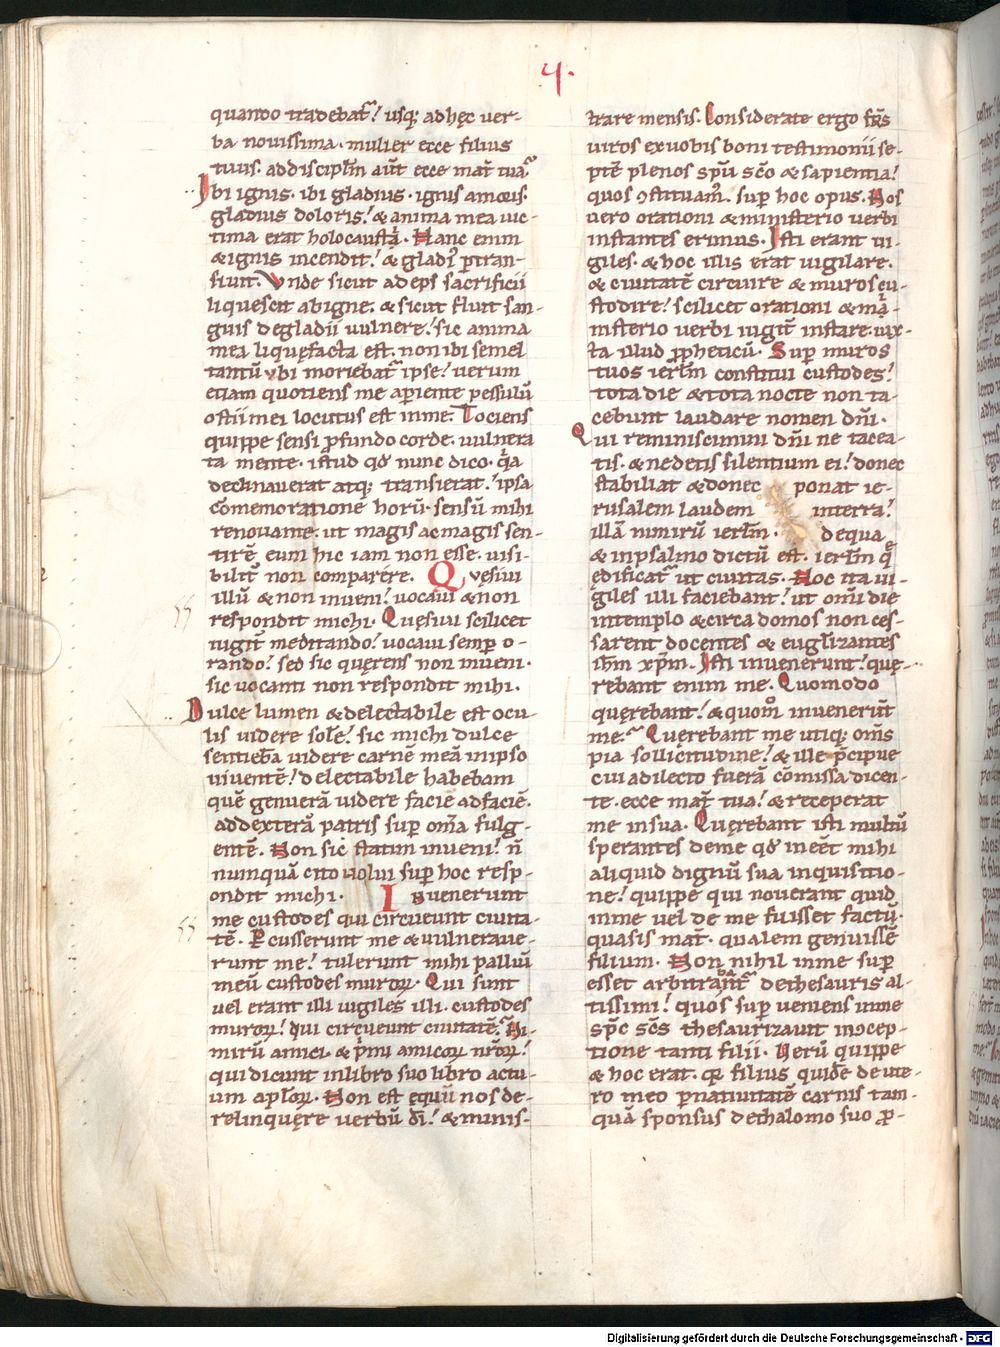 4.
quando tradebat᷑! usq; ad hęc uer-
ba nouissima. mulier ecce filius
tuus. ad discipl̅m aut̅ ecce mat᷑ tua.
Ibi ignis. ibi gladius. ignis amoris.
gladius doloris! & anima mea uic-
tima erat holocausta. Hanc enim
& ignis incendit! & gladiꝰ ꝑtran-
siuit. Vnde sicut adeps sacrificii
liquescit ab igne. & sicut fluit san-
guis de gladii uulnere! sic anima
mea liquefacta est. non ibi semel
tantū ubi moriebat᷑ ipse! uerum
etiam quotiens me aꝑiente pessulū
ostii mei locutus est in me. Tociens
quippe sensi ꝓfundo corde. uulnera
ta mente. istud qđ nunc dico. q̓a
declinauerat atq; transierat! ipsa
cōmemoratione horū. sensū mihi
renouante. ut magis ac magis sen-
tirē eum hic iam non esse. uisi-
bilit᷑ non comparere. Quęsiui
illū & non inueni! uocaui & non
respondit michi. Quęsiui scilicet
iugit᷑ meditando! uocaui semꝑ o-
rando! sed sic quęrens non inueni.
sic uocanti non respondit mihi.
Dulce lumen & delectabile est ocu-
lis uidere solē! sic michi dulce
sentiebā uidere carnē meā in ipso
uiuentē! delectabile habebam
quē genuerā uidere facie ad faciē.
ad dexterā patris suꝑ om̅ia fulg-
entē. Non sic statim inueni! n̅
nunquā cito uolui suꝑ hoc resp-
ondit michi. Inuenerunt
me custodes qui circueunt ciuita-
tē. Ꝑcusserunt me & uulneraue-
runt me! tulerunt mihi palliū
meū custodes muroꝝ. Qui sunt
uel erant illi uigiles illi. custodes
muroꝝ! qui circueunt ciuitatē. Ni-
mirū amici. & p̓mi amicoꝝ nr̅oꝝ!
qui dicunt in libro suo libro actu-
um apl̅oꝝ. Non est ęquū nos de-
relinquere uerbū dī! & minis-
trare mensis. Considerate ergo fr̅s
uiros ex uobis boni testimonii se-
ptē plenos spū sc̅o & sapientia!
quos ꝯstituam᷒. suꝑ hoc opus. Nos
uero orationi & ministerio uerbi
instantes erimus. Isti erant ui-
giles. & hoc illis erat uigilare.
& ciuitatē circuire & muros cu-
stodire! scilicet orationi & mi-
nisterio uerbi iugit᷑ instare. iux-
ta illud ꝓpheticū. Suꝑ muros
tuos ierl̅m constitui custodes!
tota die & tota nocte non ta-
cebunt laudare nomen dn̅i.
Qui reminiscimini dn̅i ne tacea-
tis. & ne detis silentium ei! donec
stabiliat & donec ponat ie-
rusalem laudem in terra!
illā nimirū ierl̅m. de qua
& in psalmo dictū est. ierl̅m quę
ędificat᷑ ut ciuitas. Hoc ita ui-
giles illi faciebant! ut om̅i die
in templo & circa domos non ces-
sarent docentes & eug̅lizantes
ihm̅ xp̅m. Isti inuenerunt! quę-
rebant enim me. Quomodo
querebant! & quom̊ inuenerūt
me. Quęrebant me utiq; om̅s
pia sollicitudine! & ille p̄cipue
cui a dilecto fuerā cōmissa dicen-
te. ecce mat᷑ tua! & receperat
me in sua. Quęrebant isti multū
sperantes de me qđ inēēt mihi
aliquid dignū sua inquisitio-
ne! quippe qui nouerant quid
in me uel de me fuisset factū.
quasis mat᷑. qualem genuissē
filium. Non nihil in me suꝑ
esset arbitrabant᷑ de thesauris al-
tissimi! quos suꝑueniens in me
spc̅ sc̅s thesaurizauit in ꝯcep-
tione tanti filii. Uerū quippe
& hoc erat. qr̅ filius quidē de ute-
ro meo ꝑ natiuitatē carnis tam-
quā sponsus de thalomo suo ꝓ-
Digitalisierung gefördert durch die Deutsche Forschungsgemeinschaft - DFG